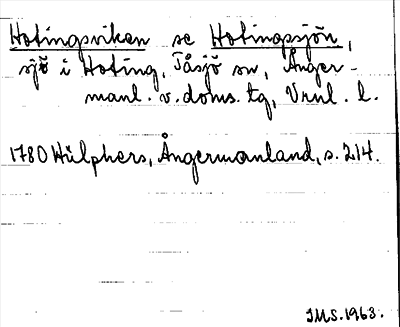 Hotingsviken se Hotingssjön,
sjö i Hoting, Tåsjö sn, Ånger-
manl. v. doms. tg, Vrnl. l.
1780 Hülphers, Ångermanland, s. 214.
JMS. 1963.